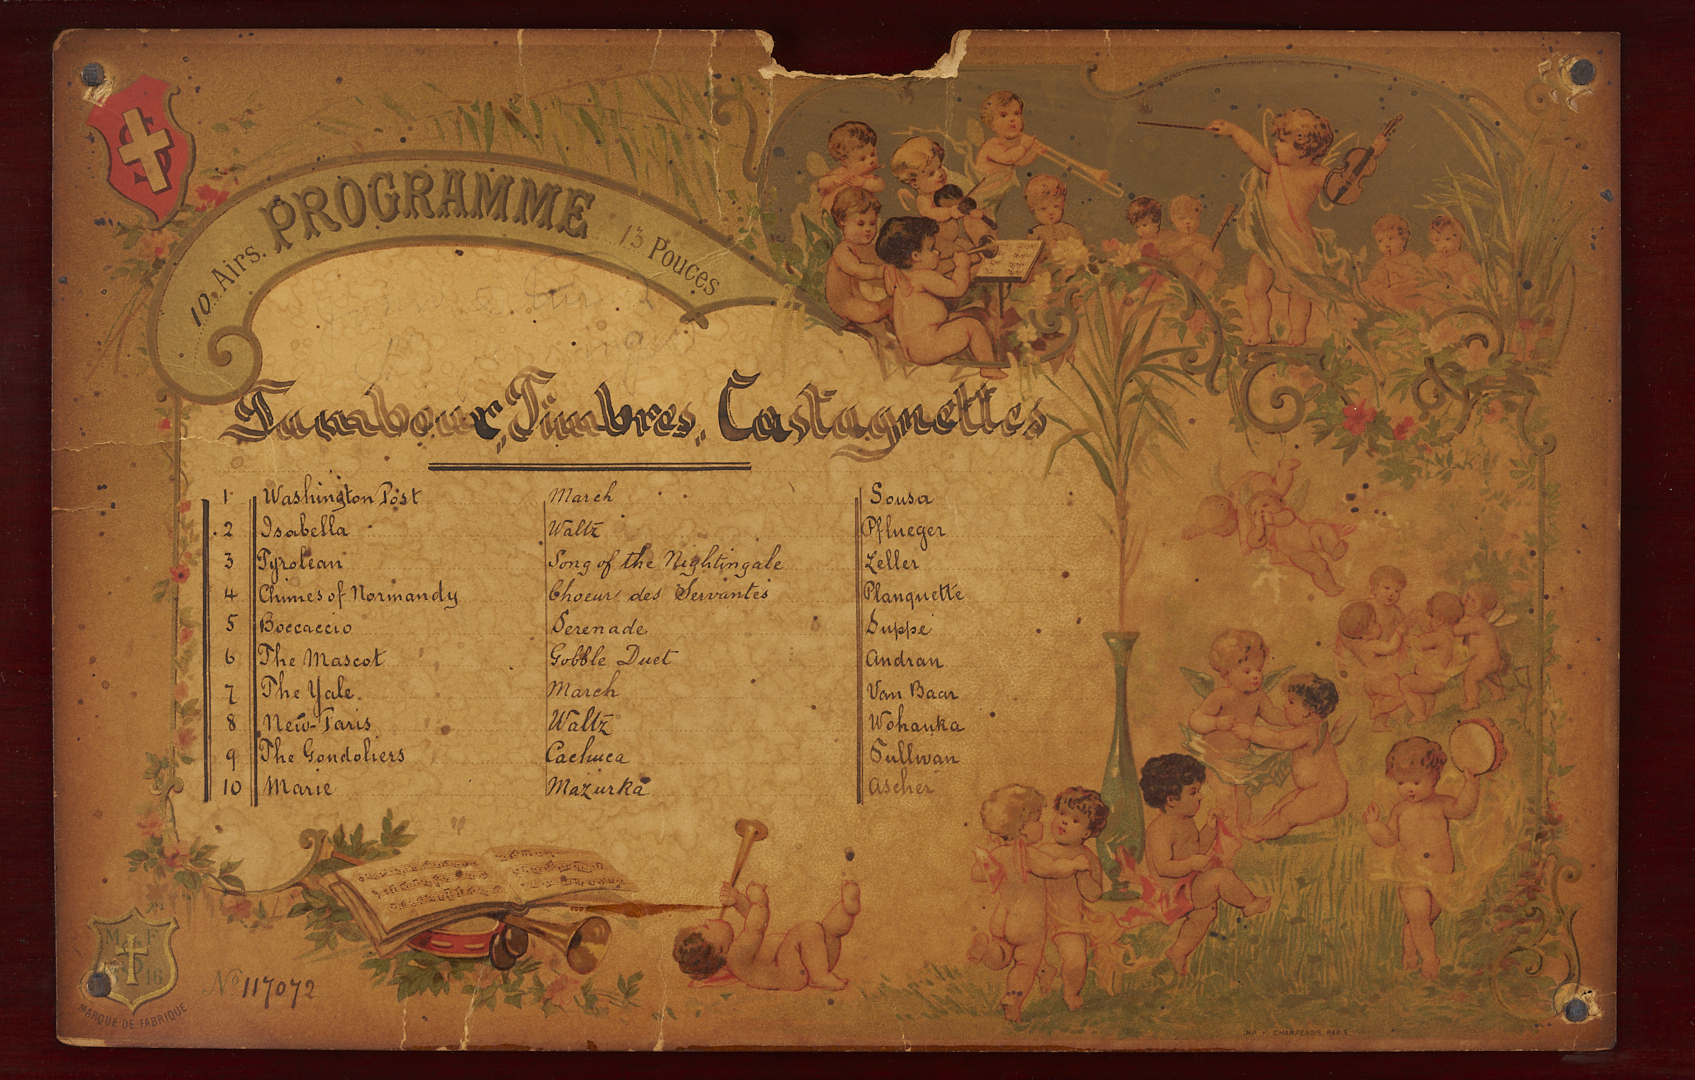 PROGRAMME
10. Airs. 13 Pouces
Tambour, Timbres, Castagnettes
1 Washington Post March Sousa
2 Isabella Waltz Pflueger
3 Tyrolean Song of the Nightingale Zeller
4 Chimes of Normandy Choeur des Servantes Planquette
5 Boccaccio Serenade Suppe
6 The Mascot Gobble Duet Andran
7 The Yale. March Van Baar
8 New-Paris Waltz Wohanka
9 The Gondoliers Cachuca Sullivan
10 Marie Mazurka Ascher
M F
16
MARQUE DE FABRIQUE
No 117072
CHAMPENOIS PARIS